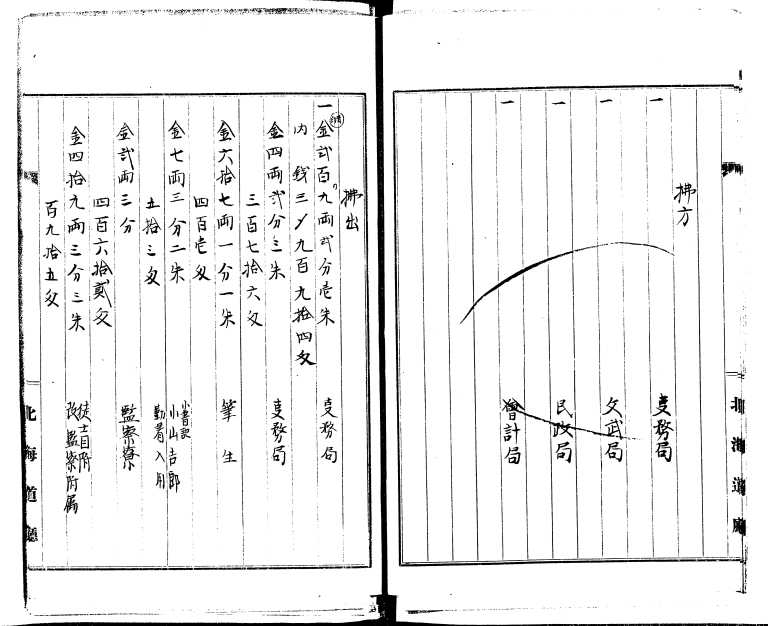 拂方
一 叓務局
一 文武局
一 民政局
一 會計局
北海道廳
拂出
一金弐百九両弐分壱朱 叓務局
内 銭三〆九百九拾四文
金四両弐分三朱 叓務局
三百七拾六文
金六拾七両一分一朱 筆生
四百壱文
金七両三分二朱 小書記 小山吉郎
五拾三文 勤着入用
金弐両三分 監察寮
四百六拾貳文
金四拾九両三分三朱 徒士目附 改監察附属
百九拾五文
北海道廳